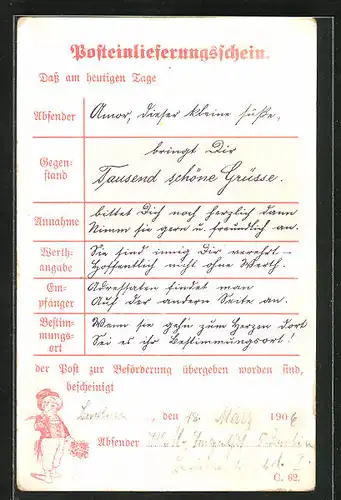 Posteinlieferungsschein.
Daß am heutigen Tage
Absender Amor, dieser kleine süße,
Gegen-
stand
bringt Dir
Tausend schöne Grüsse.
Annahme bittet Dich noch herzlich dann
Nimm sie gern u. freundlich an.
Werth-
angabe
Sie sind innig Dir verehrt –
Hoffentlich nicht ohne Werth.
Em-
pfänger
Adressaten findet man
Auf der andern Seite an.
Bestim-
mungs-
ort
Wenn sie gehn zum Herzen dort
Sei es ihr Bestimmungsort!
der Post zur Beförderung übergeben worden sind,
bescheinigt
, den 18. März 1906
Absender
C. 62.